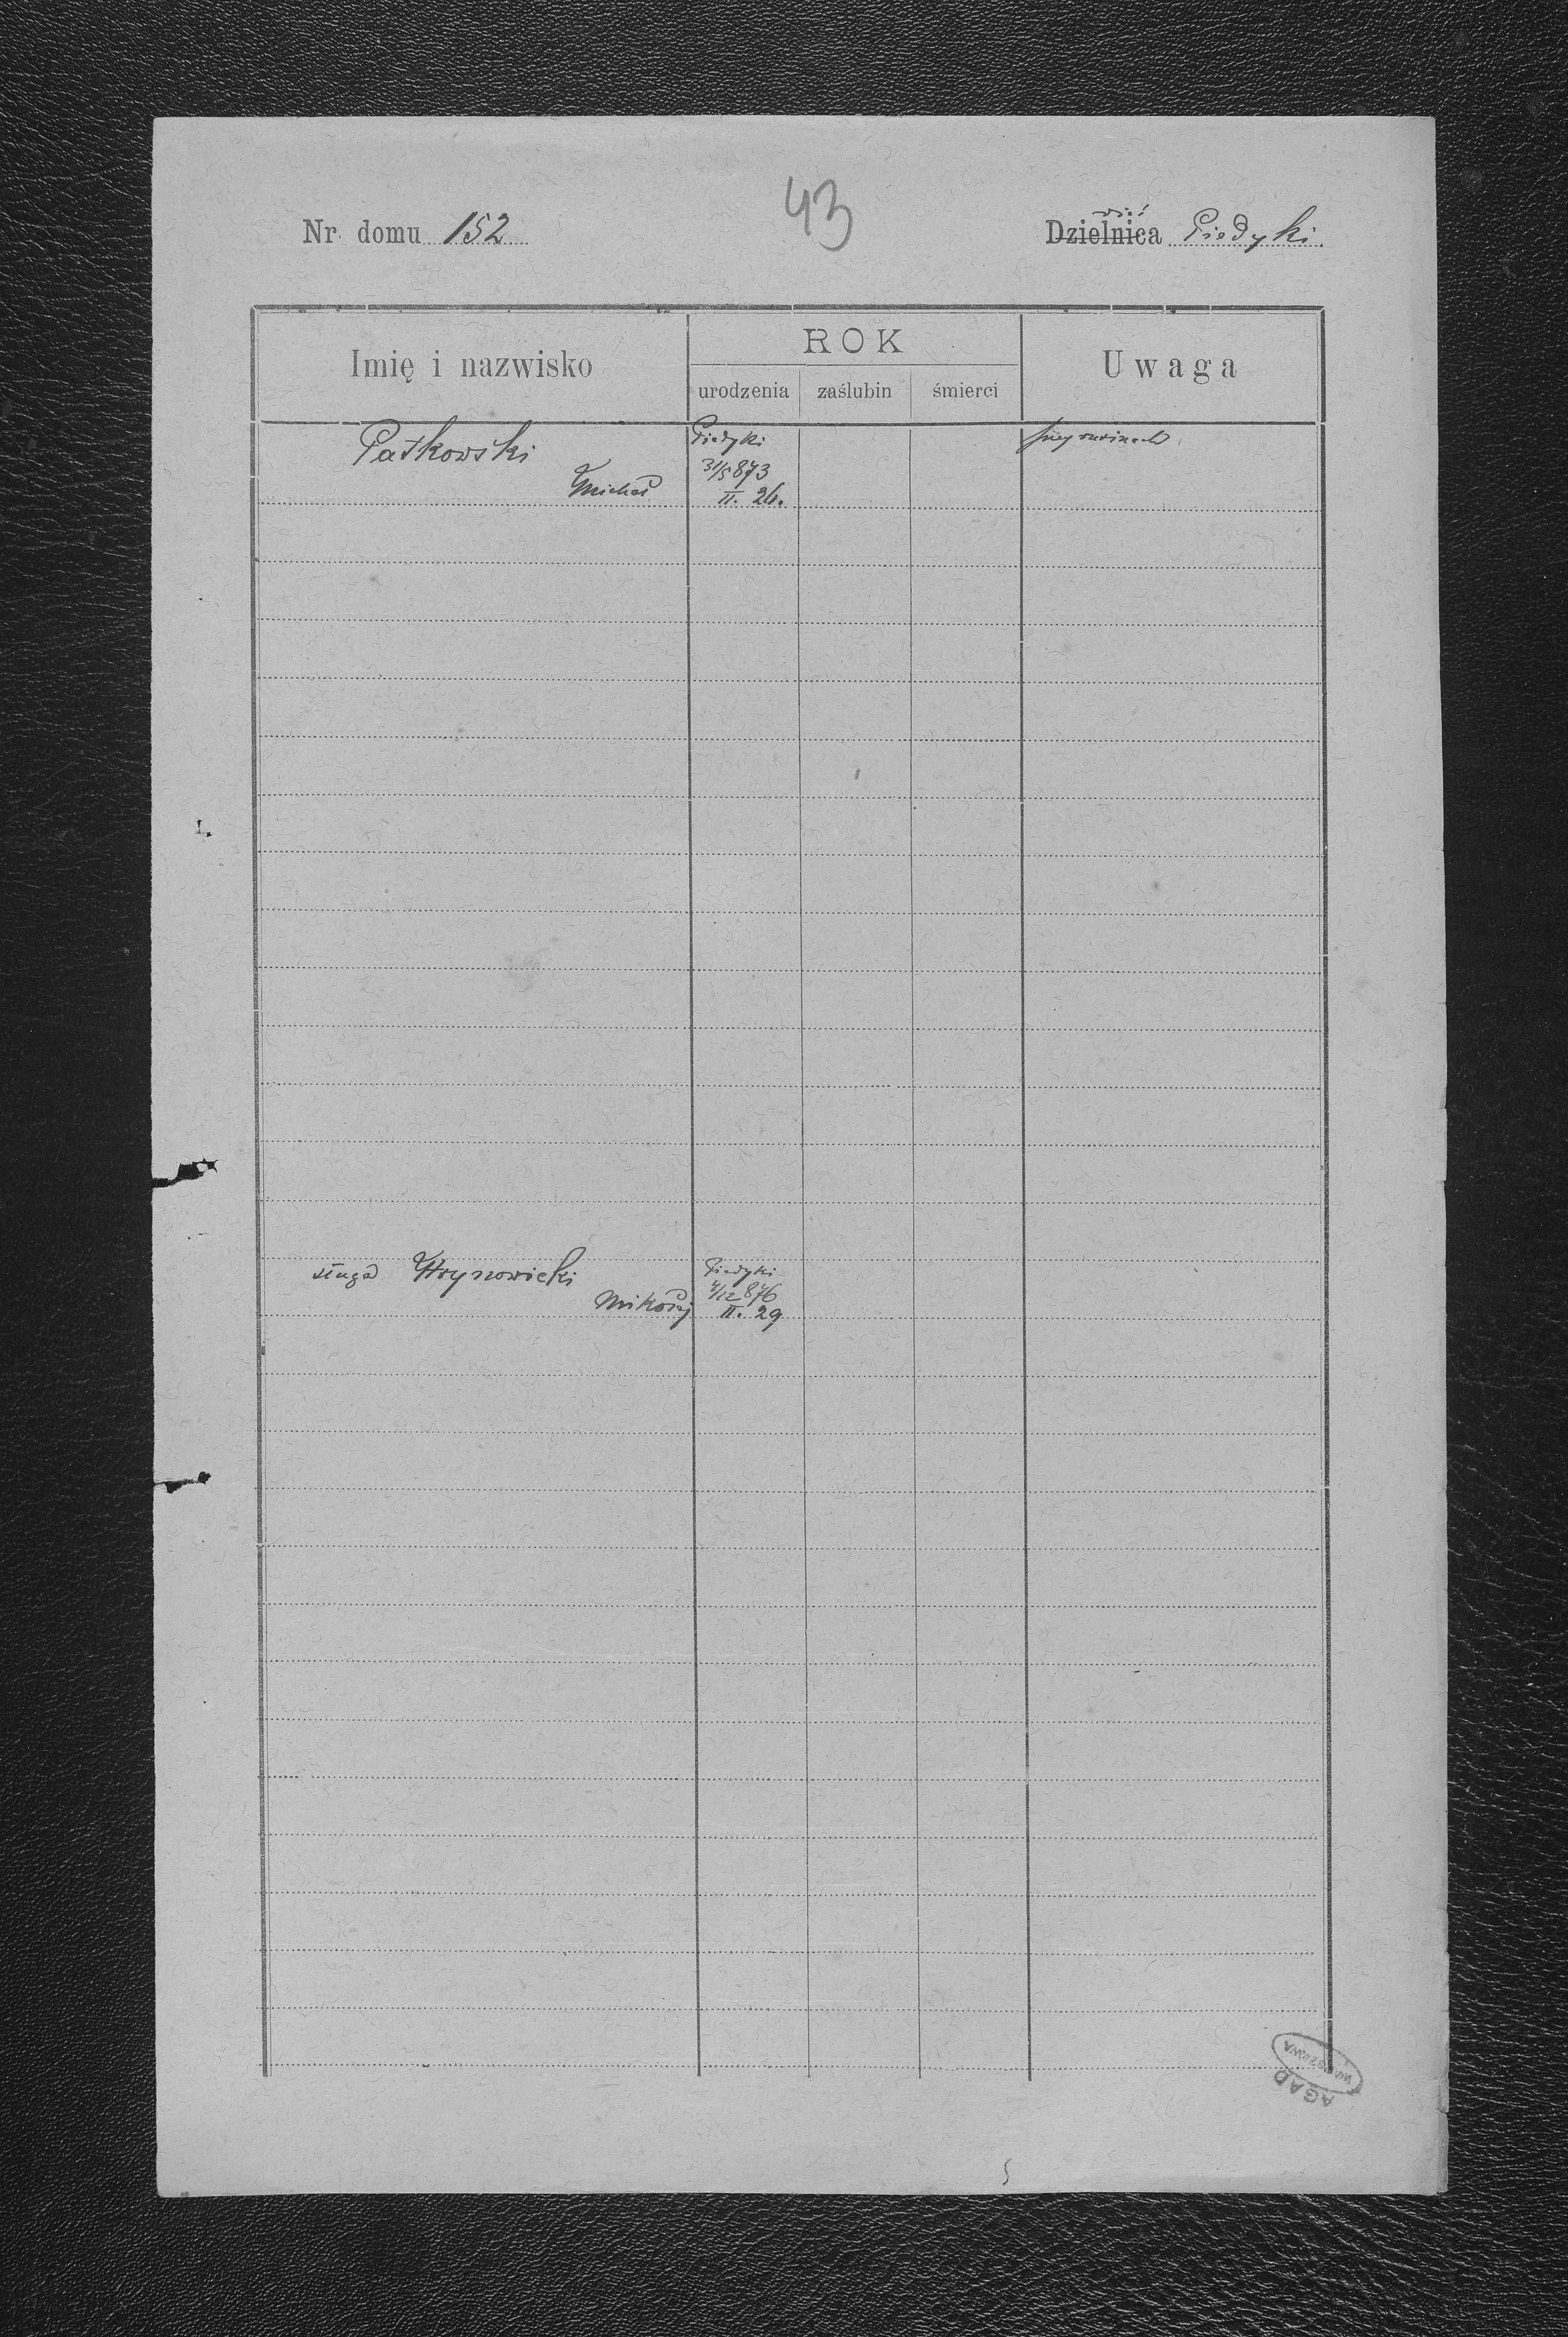 43
Nr. domu 152
wieś
Dzielnica Piedyki
Imię i nazwisko
ROK
urodzenia zaślubin śmierci
Uwaga
Patkowski
Michał
Piedyki
31/5 873
II. 26.
sługa Hrynowicki
Mikołaj
Piedyki
4/12 876
II. 29
WARSZAWA
AGAD